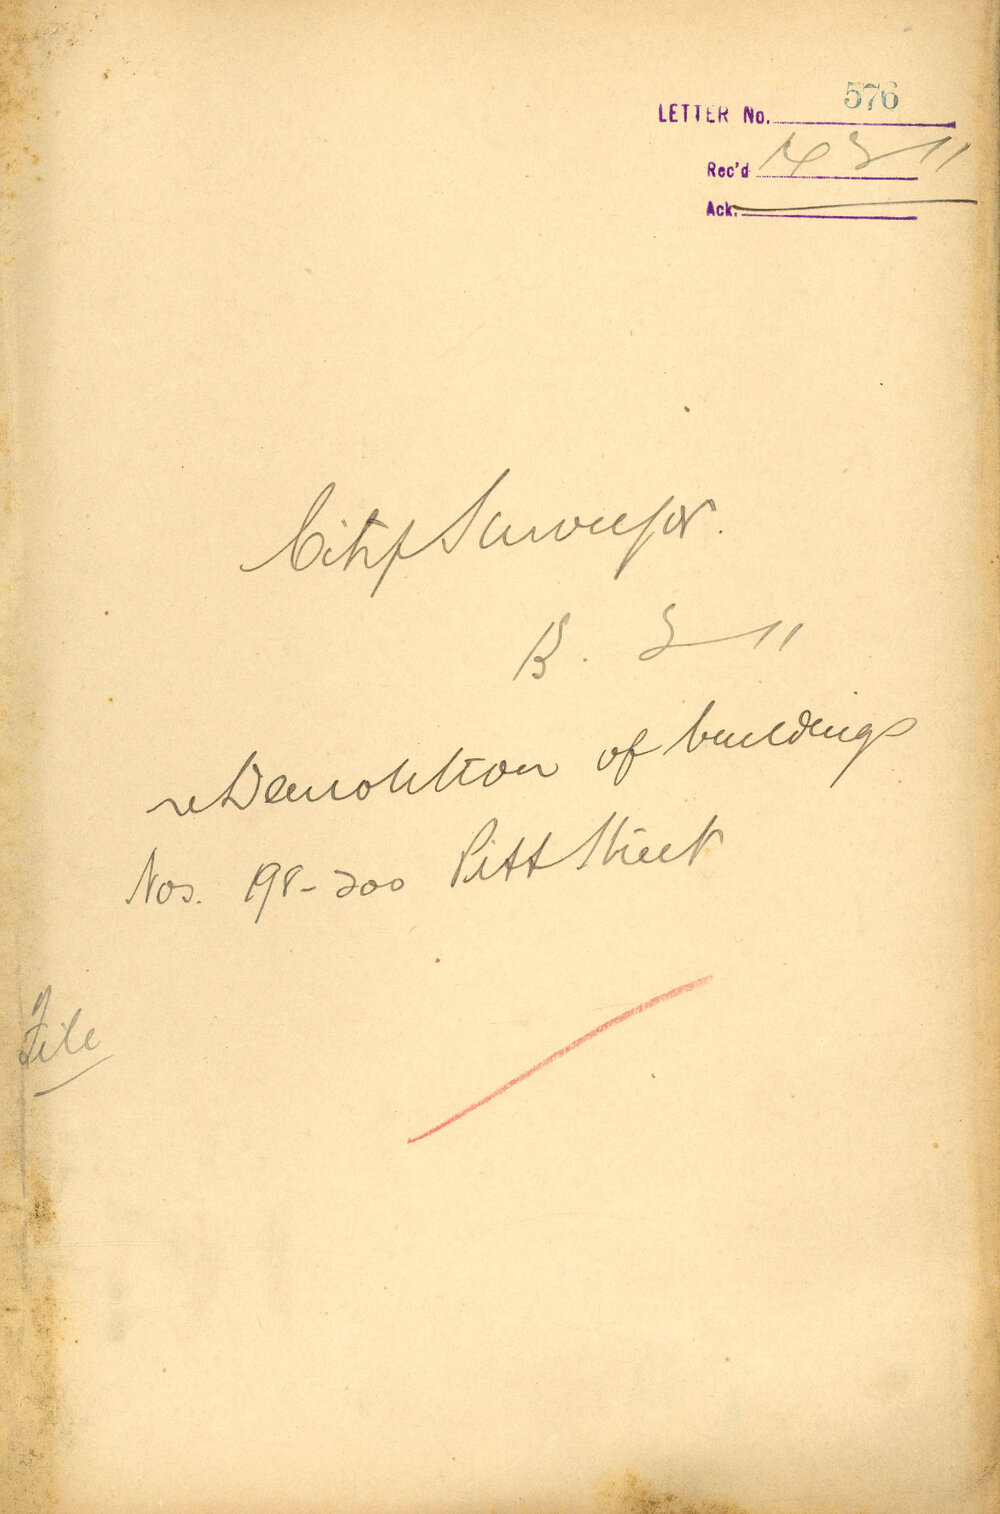 LETTER No. 576
Rec'd 14 3 11
Ack.
City Surveyor.
13. 3 11
re Demolition of buildings
Nos. 198-200 Pitt Street
File